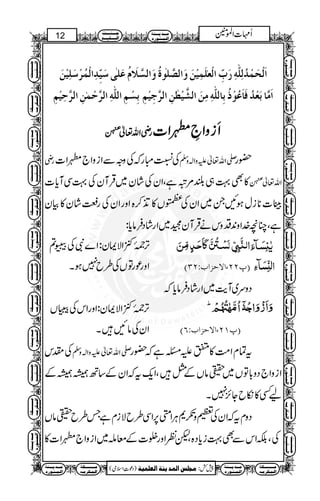 12
اُمہات المؤمنین
اَلْحَمْدُ لِلّٰهِ رَبِّ الْعٰلَمِیْنَ وَالصَّلٰوةُ وَالسَّلَامُ عَلٰی سَیِّدِ الْمُرْسَلِیْنَ
اَمَّا بَعْدُ فَاَعُوْذُ بِاللّٰهِ مِنَ الشَّیْطٰنِ الرَّجِیْمِ بِسْمِ اللّٰهِ الرَّحْمٰنِ الرَّحِیْمِ
اَزواجِ مطہرات رضی اللہ تعالیٰ عنہن
حضور صلی اللہ تعالیٰ علیہ والہ وسلم کی نسبت مبارکہ کی وجہ سے ازواج مطہرات رضی
اللہ تعالیٰ عنہن کا بھی بہت ہی بلند مرتبہ ہے، ان کی شان میں قرآن کی بہت سی آیات
بینات نازل ہوئیں جن میں ان کی عظمتوں کا تذکرہ اور ان کی رفعت شان کا بیان
ہے، چنانچہ خداوند قدوس نے قرآن مجید میں ارشاد فرمایا:
یٰنِسَآءَ النَّبِیِّ لَسْتُنَّ كَاَحَدٍ مِّنَ ترجمۂ کنزالایمان: اے نبی کی بیبیو تم
النِّسَآءِ (پ۲۲، الاحزاب:۳۲) اور عورتوں کی طرح نہیں ہو۔
دوسری آیت میں ارشاد فرمایا کہ
وَ اَزْوَاجُهٗۤ اُمَّهٰتُهُمْ ؕ ترجمۂ کنزالایمان: اور اس کی بیبیاں
(پ۲۱، الاحزاب:۶) ان کی مائیں ہیں۔
یہ تمام امت کا متفق علیہ مسئلہ ہے کہ حضور صلی اللہ تعالیٰ علیہ والہ وسلم کی مقدس
ازواج دو باتوں میں حقیقی ماں کے مثل ہیں، ایک یہ کہ ان کے ساتھ ہمیشہ ہمیشہ کے
لیے کسی کا نکاح جائز نہیں۔
دوم یہ کہ ان کی تعظیم و تکریم ہر امتی پر اسی طرح لازم ہے جس طرح حقیقی ماں
کی، بلکہ اس سے بھی بہت زیادہ، لیکن نظر اور خلوت کے معاملہ میں ازواج مطہرات کا
پیش کش: مجلس المدینة العلمیة (دعوتِ اسلامی)